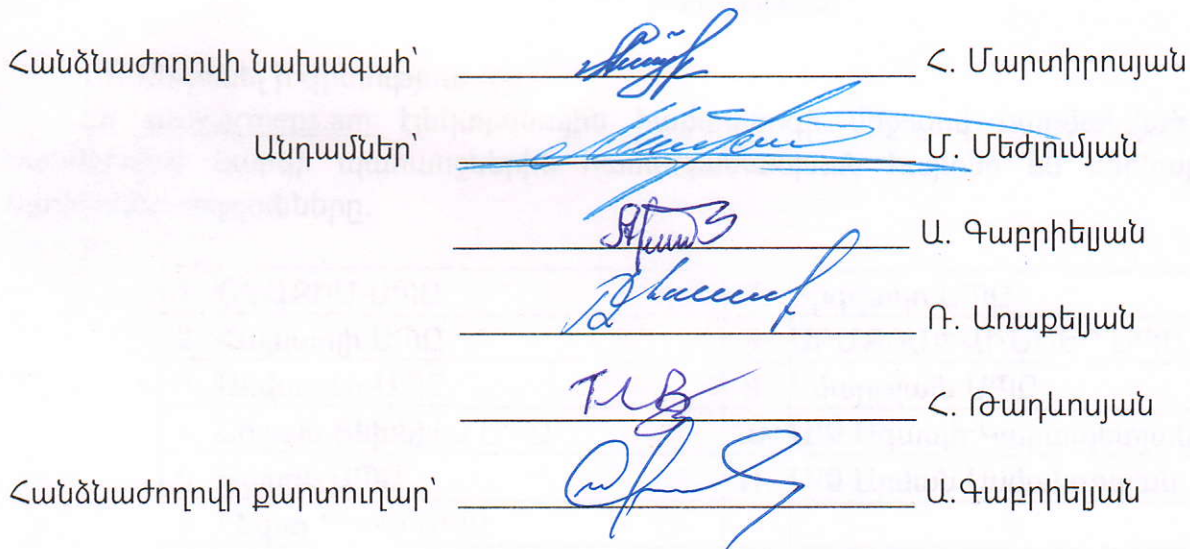 Հանձնաժողովի նախագահ՝ Հ. Մարտիրոսյան
Անդամներ՝ Մ. Մեժլումյան
Ա. Գաբրիելյան
Ռ. Առաքելյան
Հ. Թադևոսյան
Հանձնաժողովի քարտուղար՝ Ա. Գաբրիելյան